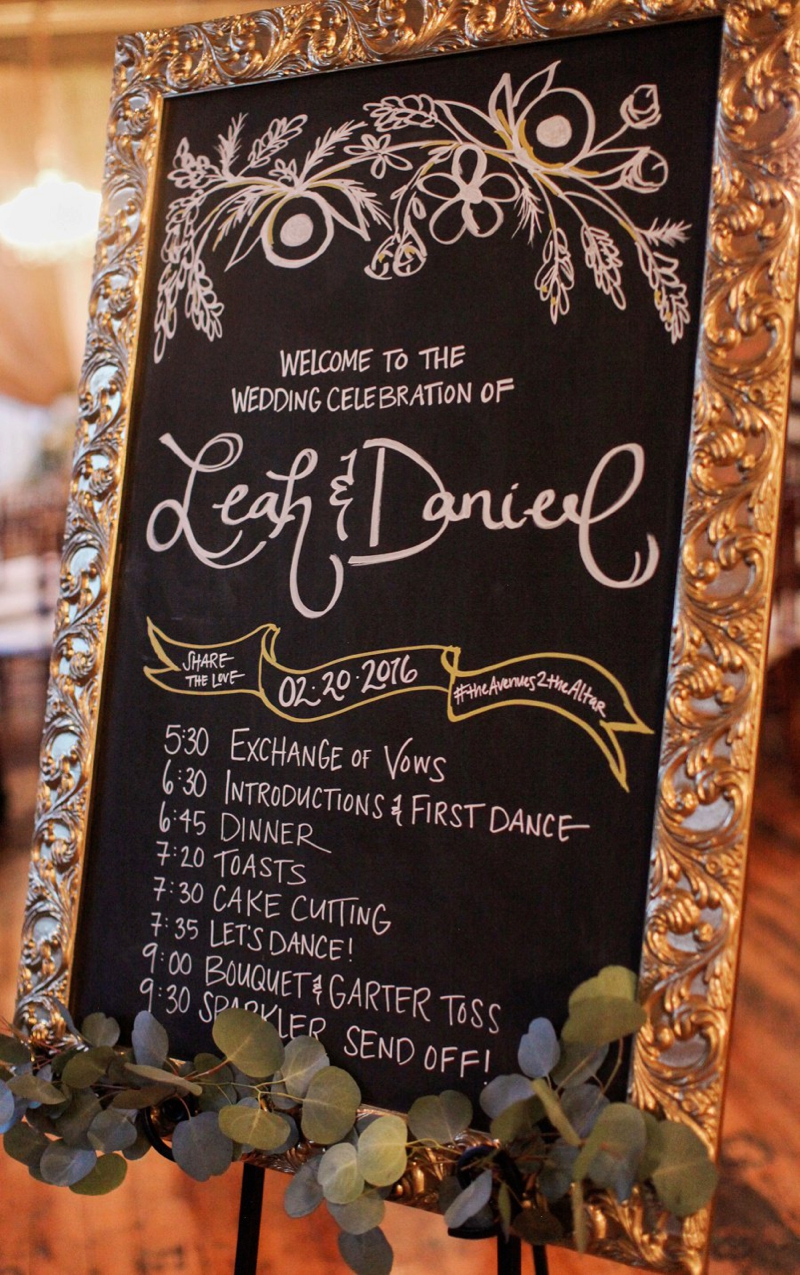 WELCOME TO THE
WEDDING CELEBRATION OF
Leah & Daniel
SHARE
THE LOVE
02·20·2016
#theAvenues2theAltar
5:30 EXCHANGE OF VOWS
6:30 INTRODUCTIONS & FIRST DANCE
6:45 DINNER
7:20 TOASTS
7:30 CAKE CUTTING
7:35 LET'S DANCE!
9:00 BOUQUET & GARTER TOSS
9:30 SPARKLER SEND OFF!